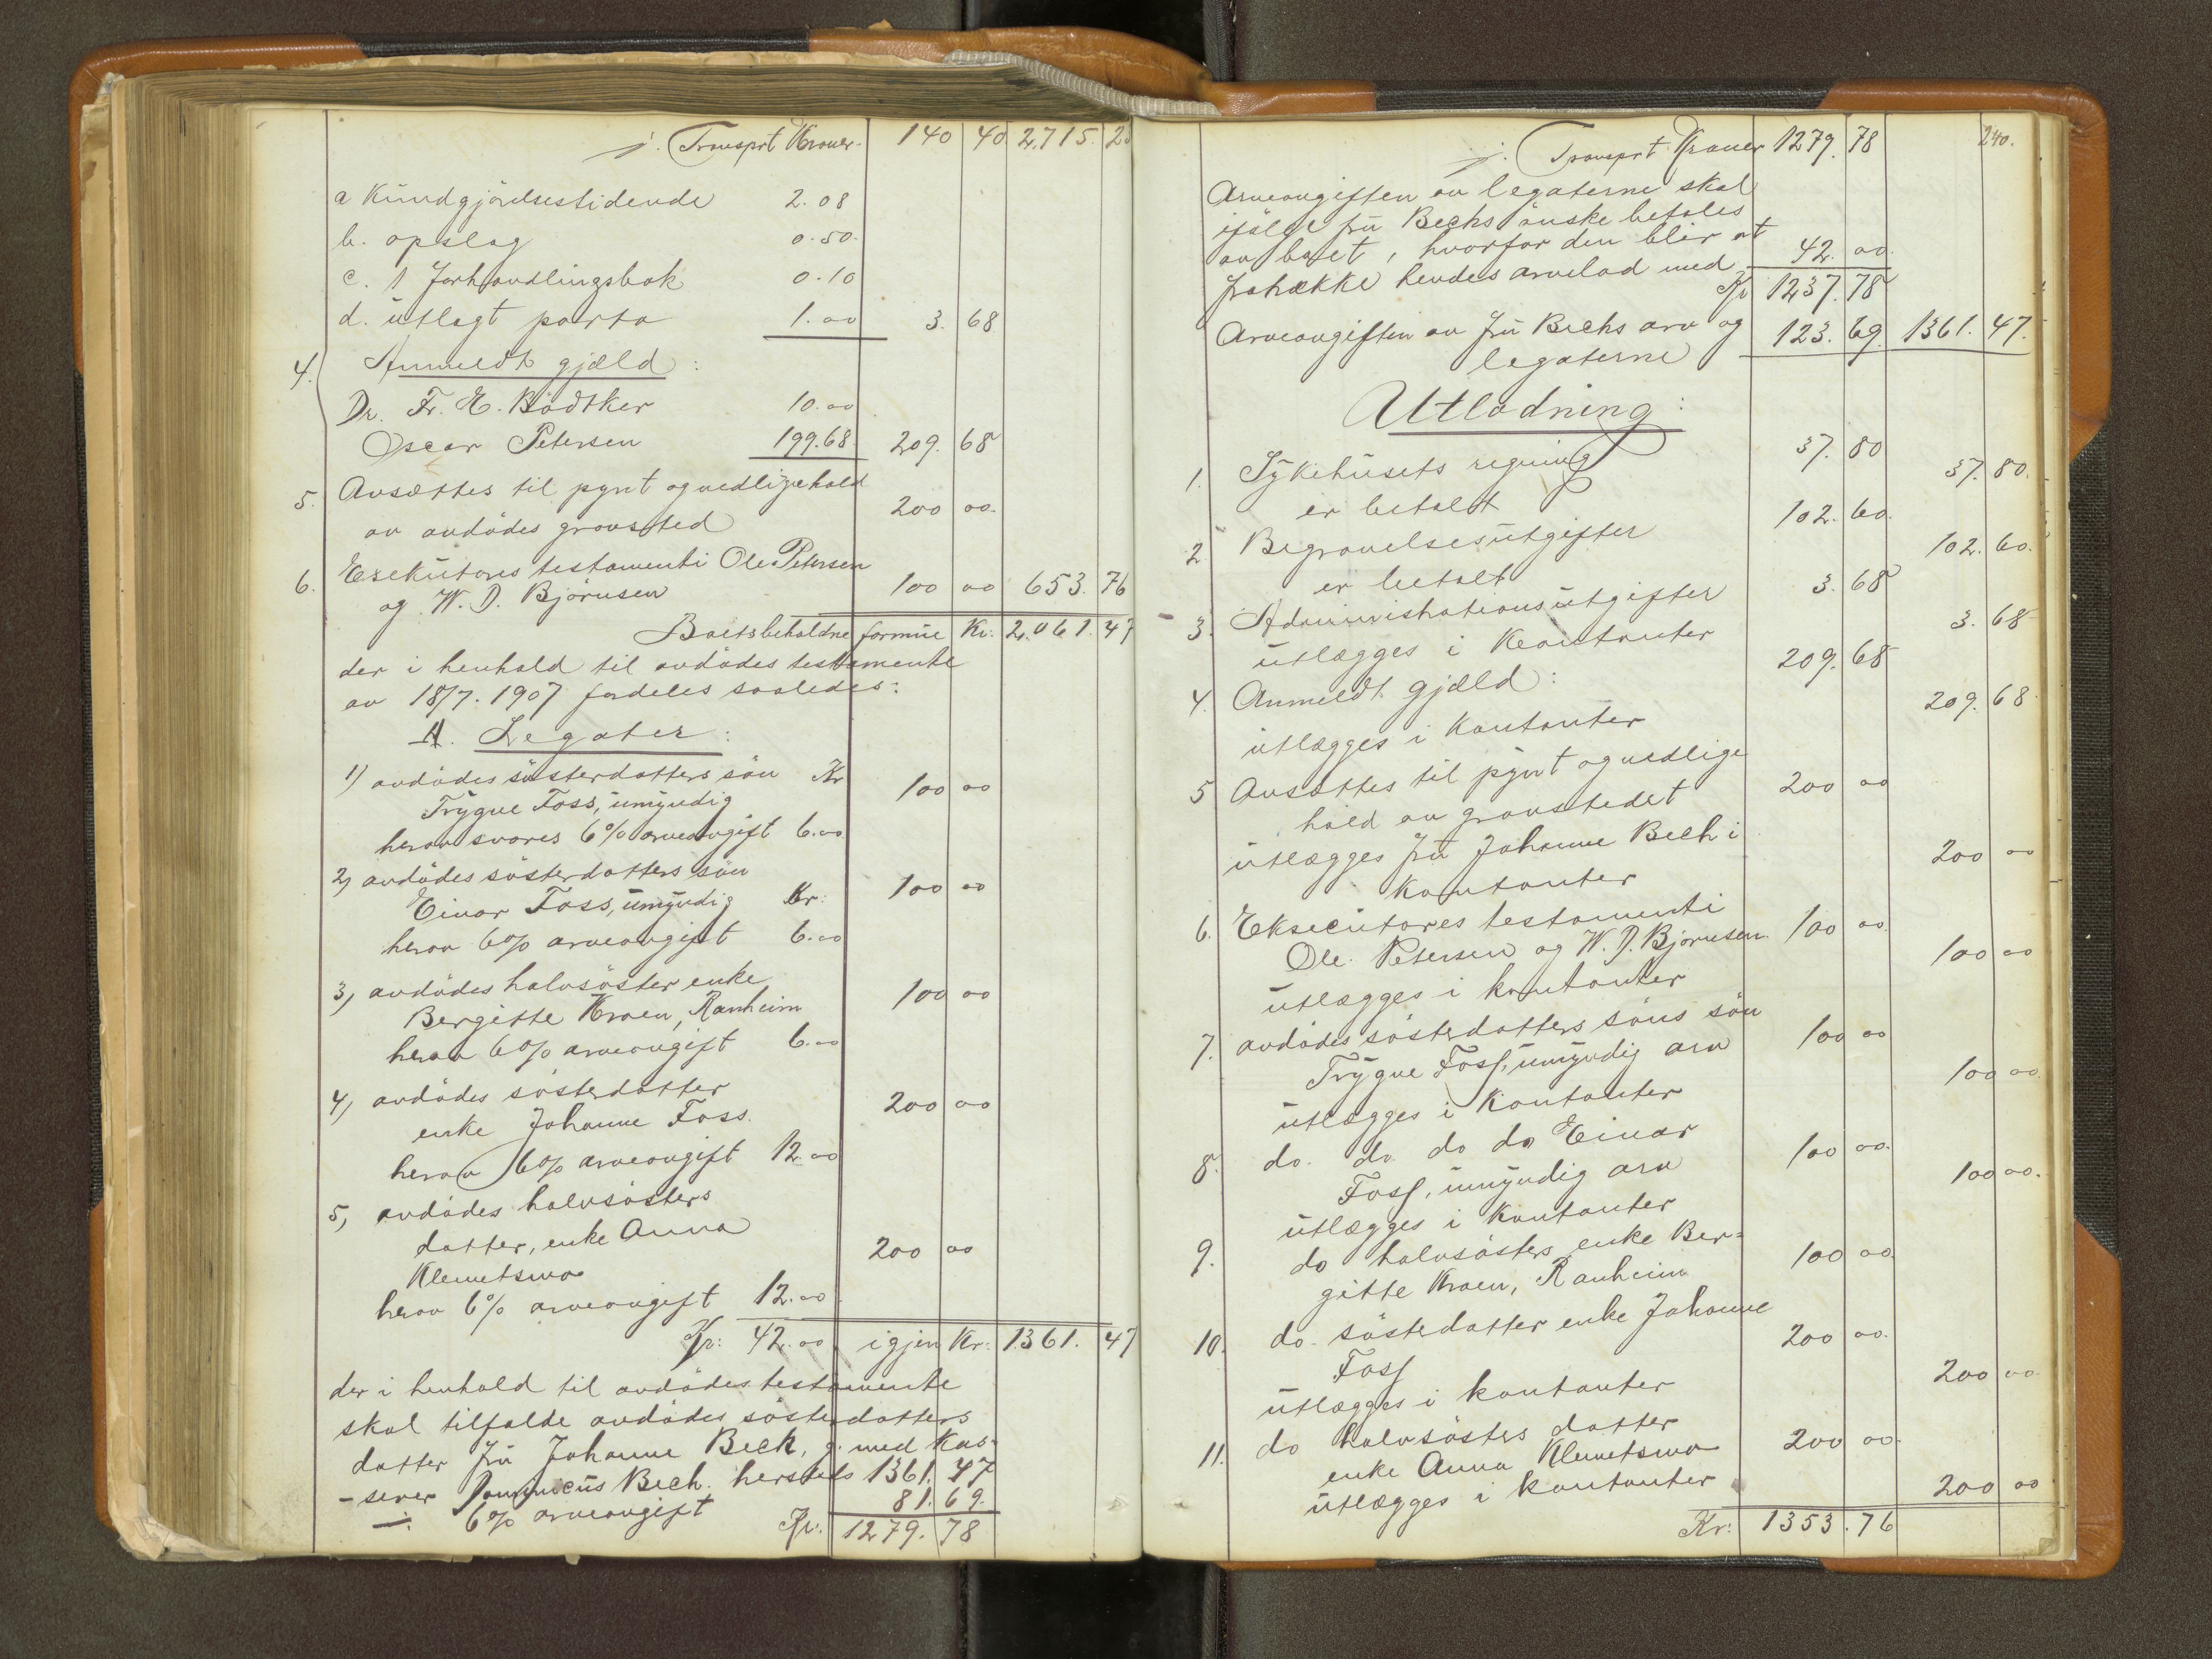 ÷ Transprt Kroner. 140 40 2,715. 2
a Kundgjørelsestidende 2.08
b. opslag 0.50.
c. 1 Forhandlingsbok 0.10
d. utlagt porto 1.00 3. 68
4. Anmeldt gjæld:
Dr. Fr. E. Bødtker 10.00
Oscar Petersen 199.68 209. 68
5. Avsættes til pynt og vedlikehold
av avdødes gravsted 200 00.
6. Exekutores testamenti Ole Petersen
og W. D. Bjørnsen 100 00 653. 76
Boets beholdne formue Kr: 2,061. 47
der i henhold til avdødes testamente
av 18/7. 1907 fordeles saaledes:
A. Legater:
1) avdødes søsterdatters søn Kr
Trygve Foss, umyndig 100 00
herav svares 6% arveavgift 6.00
2) avdødes søsterdatters søn
Einar Foss, umyndig Kr: 100 00
herav 6% arveavgift 6.00
3) avdødes halvsøster enke
Bergitte Kroen, Ranheim 100 00
herav 6% arveavgift 6.00
4) avdødes søsterdatter
enke Johanne Foss. 200 00
herav 6% arveavgift 12.00
5) avdødes halvsøsters
datter, enke Anna
Klemetsmo 200 00
herav 6% arveavgift 12.00
Kr: 42.00 igjen Kr: 1361. 47
der i henhold til avdødes testamente
skal tilfalde avdødes søsterdatters
datter fru Johanne Bech, g. med Kas-
-serer Dominicus Bech. hersteds 1361. 47
÷ 6% arveavgift 81. 69.
Kr. 1279. 78
÷ Transprt Kroner 1279. 78 240.
Arveavgiften av legaterne skal
ifølge fru Bechs ønske betales
av boet, hvorfor den blir at
fratrække hendes arvelod med 42. 00.
Kr 1237. 78
Arveavgiften av fru Bechs arv og 123. 69 1361. 47.
legaterne
Utlodning:
1. Sykehusets regning 37. 80
er betalt 37. 80.
2 Begravelsesutgifter 102. 60.
er betalt 102. 60.
3. Administrationsutgifter 3. 68
utlægges i Kontanter 3. 68
4. Anmeldt gjæld: 209. 68
utlægges i Kontanter 209. 68
5 Avsættes til pynt og vedlige
hold av gravstedet 200 00
utlægges fru Johanne Bech i
Kontanter 200 00
6. Eksecutores testamenti
Ole Petersen og W. D. Bjørnsen 100 00.
utlægges i kontanter 100 00
7. avdødes søsterdatters søns søn
Trygve Foss, umyndig arv 100 00
utlægges i Kontanter 100 00.
8. do. do do do Einar
Foss, umyndig arv 100 00.
utlægges i Kontanter 100 00.
9. do halvsøsters enke Ber=
gitte Kroen, Ranheim 100 00.
10. do. søsterdatter enke Johanne
Foss 200 00.
utlægges i kontanter 200 00
11. do halvsøsters datter
enke Anna Klemetsmo 200 00.
utlægges i kontanter 200 00
Kr: 1353. 76